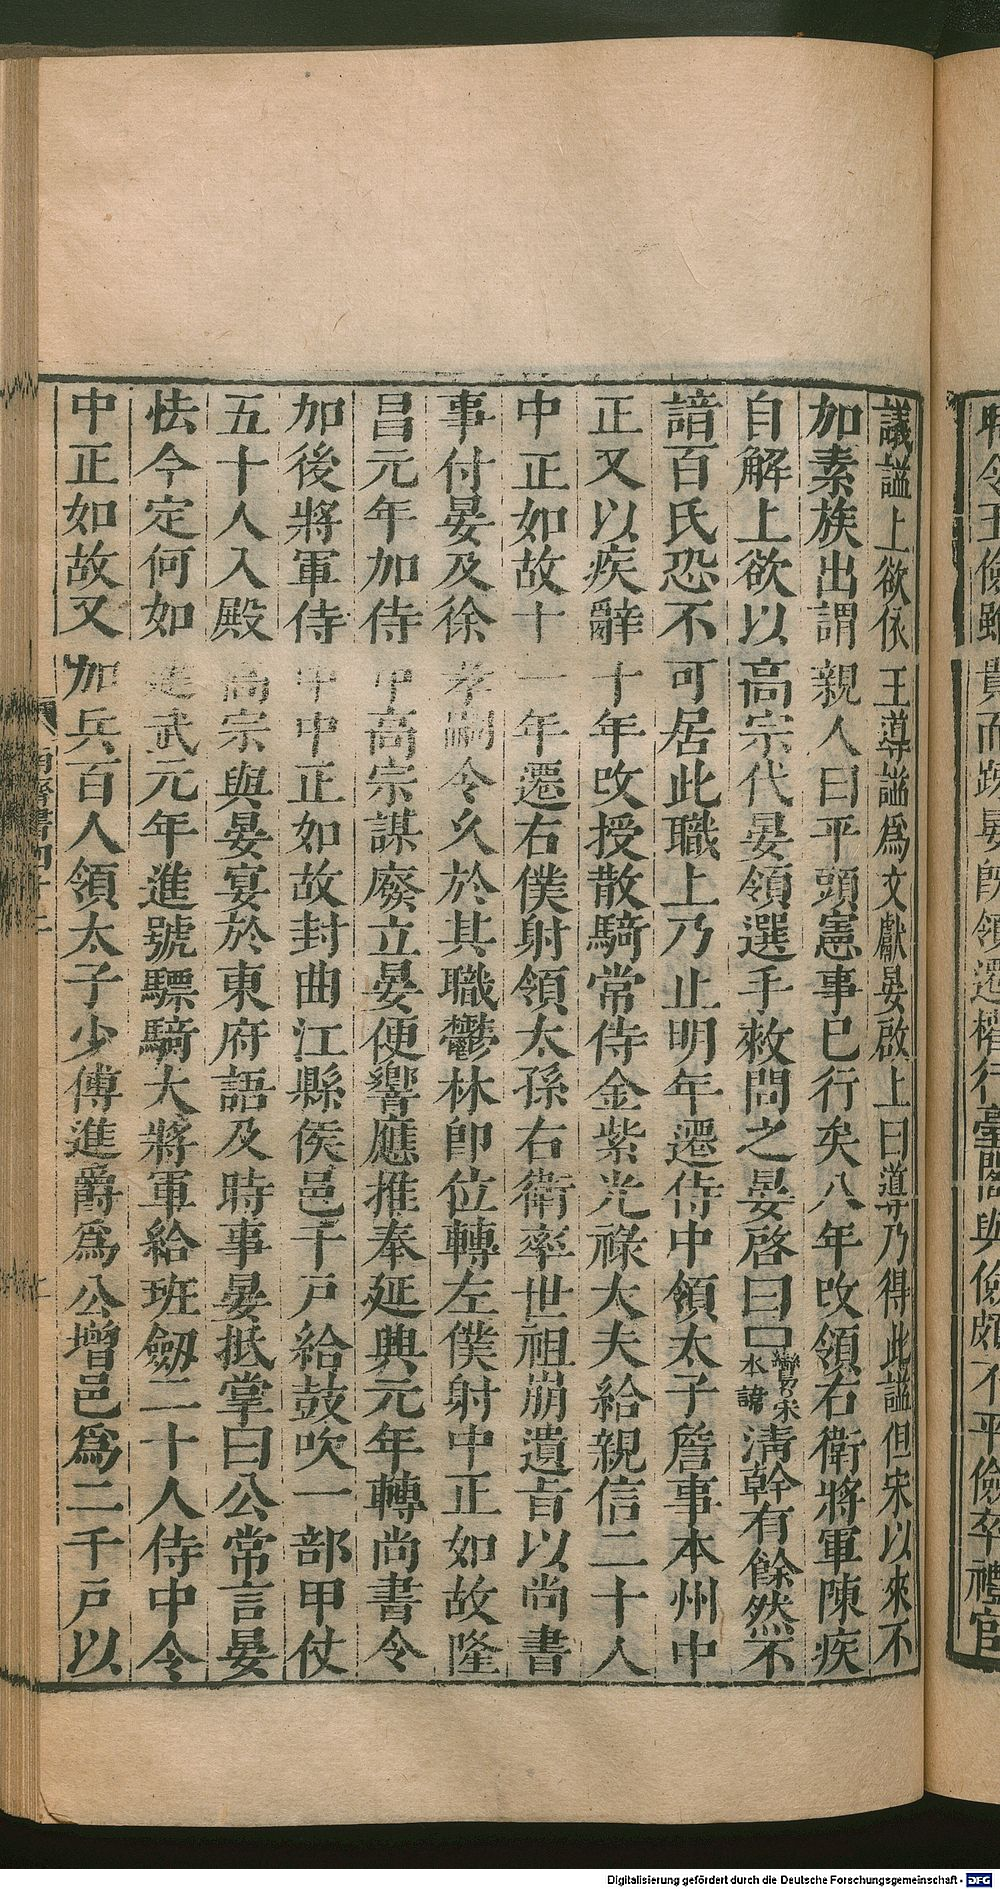 聃令王儉雖貴而疎晏旣領選權行臺閣與儉頗不平儉卒禮官
議謚上欲依王導謚爲文獻晏啟上曰導乃得此謚但宋以來不
加素族出謂親人曰平頭憲事巳行矣八年改領右衛將軍陳疾
自解上欲以高宗代晏領選手敕問之晏啓曰清幹有餘然不
諳百氏恐不可居此職上乃止明年遷侍中領太子詹事本州中
正又以疾辭十年改授散騎常侍金紫光祿大夫給親信二十人
中正如故十一年遷右僕射領太孫右衛率世祖崩遺旨以尚書
事付晏及徐孝嗣令久於其職鬱林卽位轉左僕射中正如故隆
昌元年加侍中高宗謀廢立晏便響應推奉延興元年轉尚書令
加後將軍侍中中正如故封曲江縣侯邑千戸給鼓吹一部甲仗
五十人入殿高宗與晏宴於東府語及時事晏抵掌曰公常言晏
怯今定何如建武元年進號驃騎大將軍給班劒二十人侍中令
中正如故又加兵百人領太子少傅進爵爲公增邑爲二千戸以
南齊書四十二
Digitalisierung gefördert durch die Deutsche Forschungsgemeinschaft - DFG